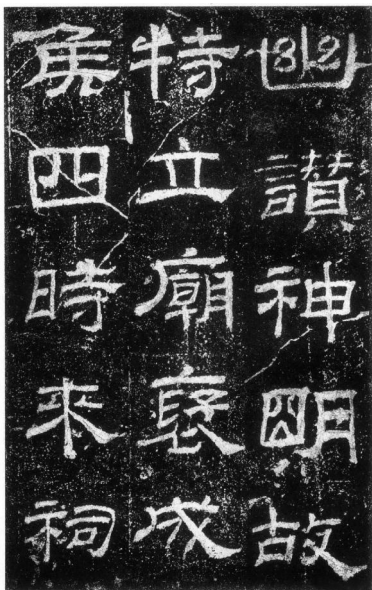 幽讃神明故
特立廟褒成
侯四時來祠